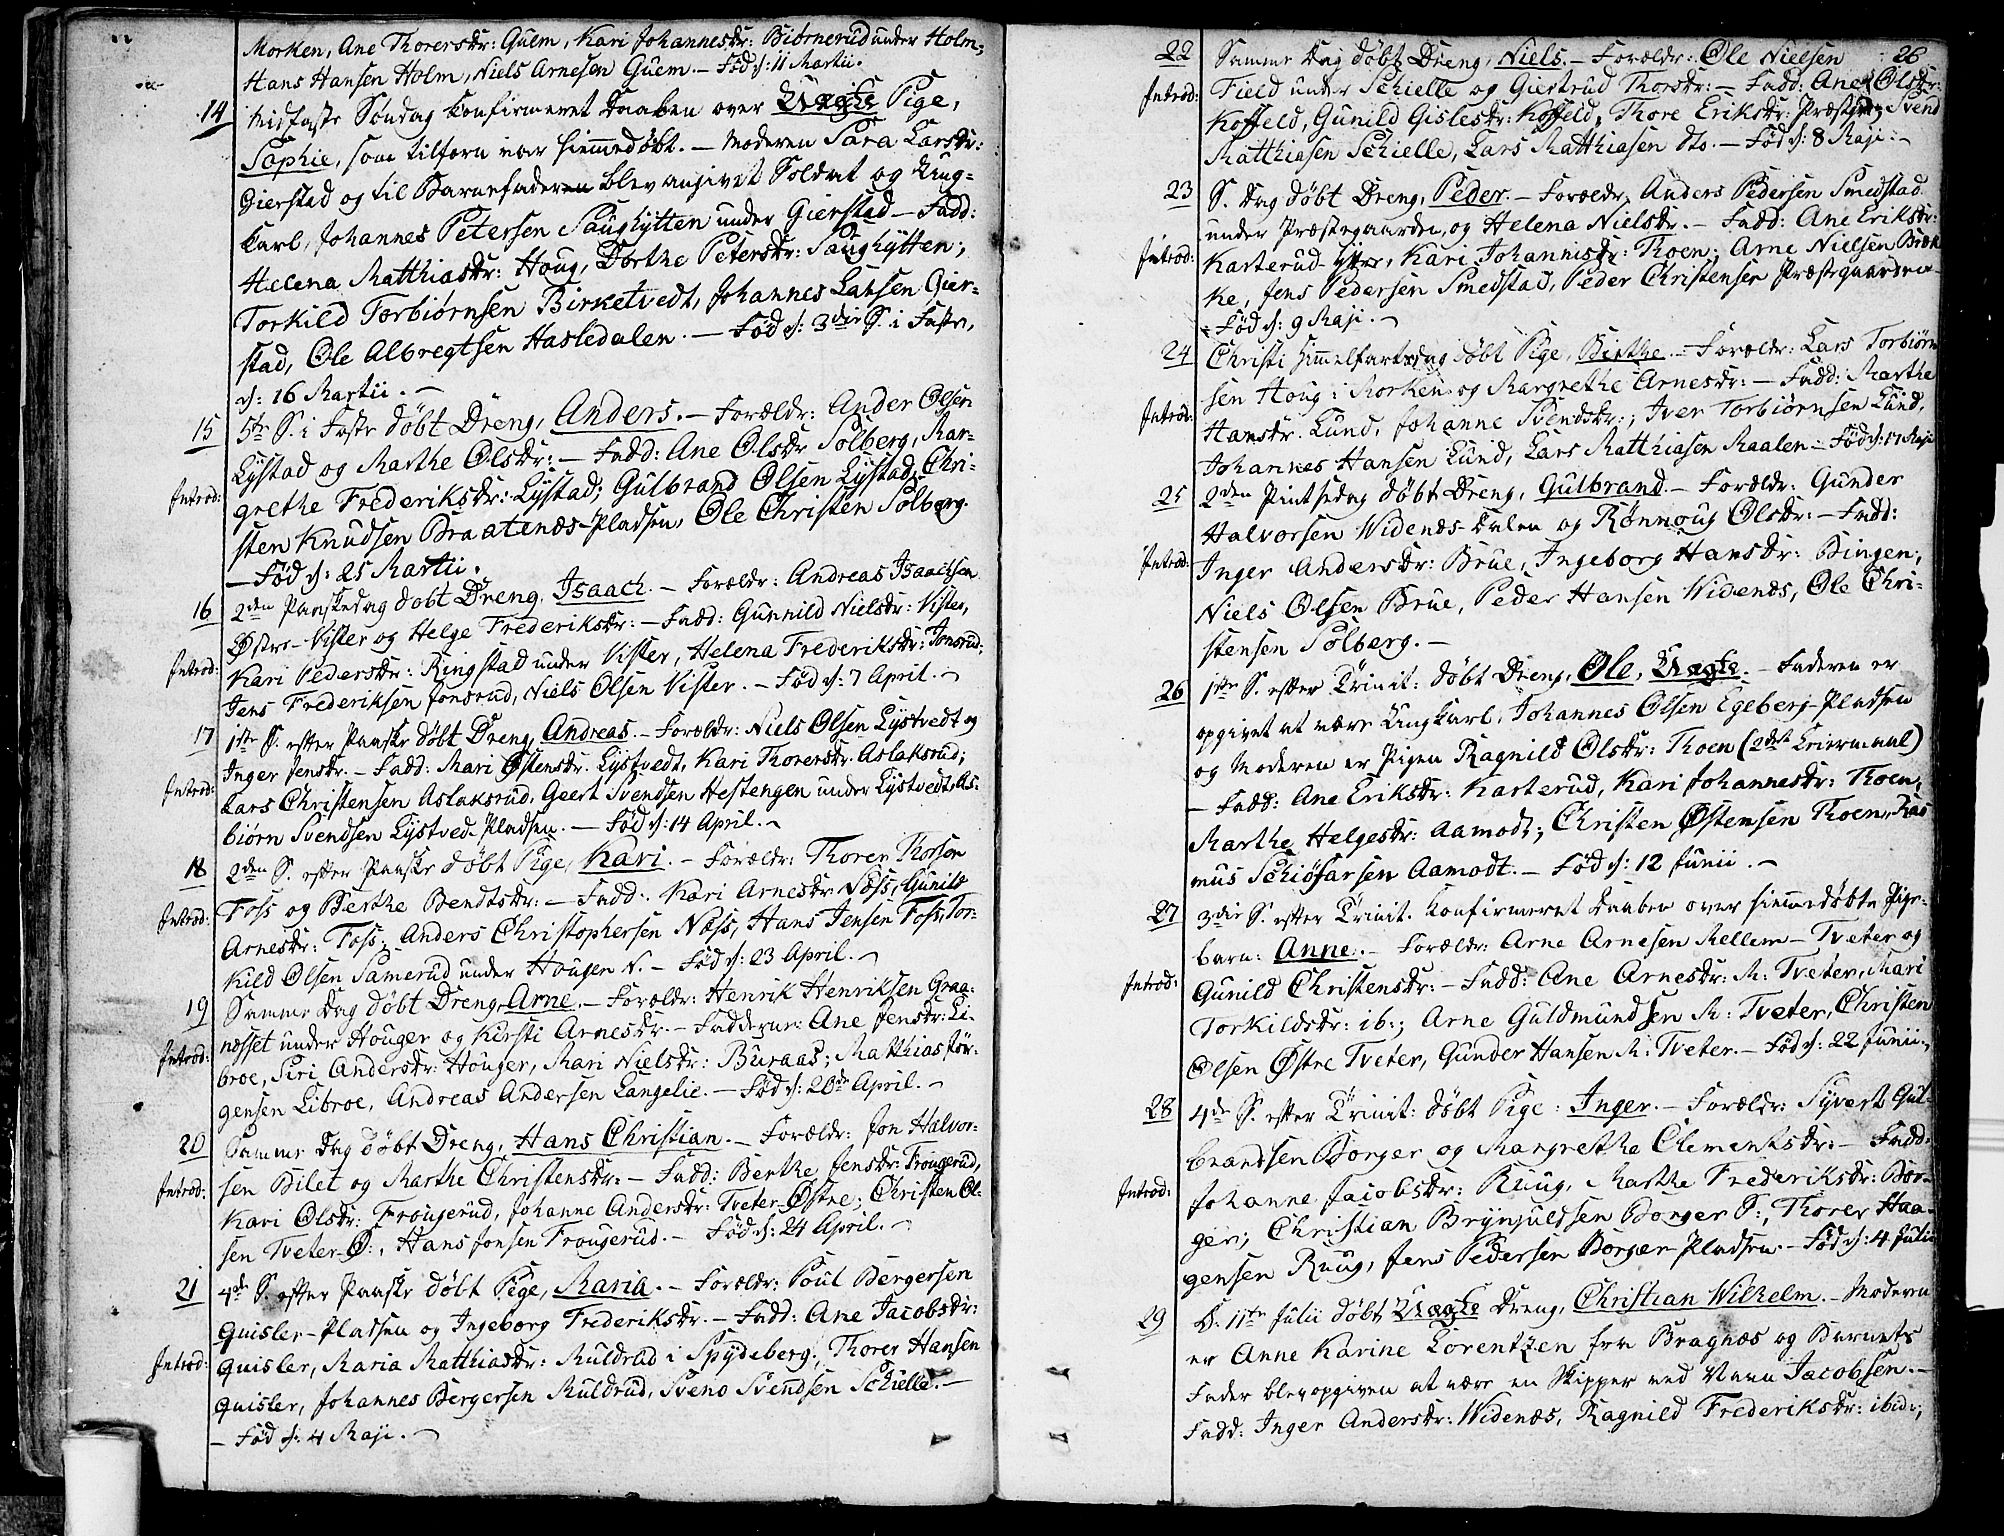 Morken, Ane Thorersdr: Guem, Kari Johannesdr: Biörnerud under Holm;
Hans Hansen Holm, Niels Arnesen Guem. – Föd d: 11 Martii.
14 Midfaste Söndag Confirmeret Daaben over Uægte Pige,
Sophie, som tilforn var hiemmedöbt. – Moderen Sara Larsdr:
Gierstad og til Barnefader blev angivet Soldat og Ung-
karl, Johannes Petersen Saughytten under Gierstad – Fadd:
Helena Matthiasdr: Houg, Dorthe Petersdr: Saughytten;
Torkild Torbiörnsen Birketvedt, Johannes Larsen Gier-
stad, Ole Albregtsen Hasledalen. – Föd d: 3die S. i Faste,
d: 16 Martii. –
15 5te S. i Faste döbt Dreng, Anders. – Forældr: Ander Olsen
Lystad og Marthe Olsdr: – Fadd: Ane Olsdr Solberg, Mar-
Introd: grethe Frederiksdr: Lystad; Gulbrand Olsen Lystad, Chri-
sten Knudsen Braatenæs-Pladsen, Ole Christen Solberg.
– Föd d: 25 Martii.
16 2den Paaskedag döbt Dreng, Isaach. – Forældr: Andreas Isaachsen
Östre-Vister og Helge Frederiksdr: – Fadd: Gunnild Nielsdr: Vister,
Introd: Kari Pedersdr: Ringstad under Vister, Helena Frederiksdr: Jonsrud;
Jens Frederiksen Jonsrud, Niels Olsen Vister. – Föd d: 7 April. –
17 1ste S. efter Paaske döbt Dreng, Andreas. – Forældr: Niels Olsen Lystvedt og
Inger Jensdr. – Fadd: Mari Östensdr. Lystvedt, Kari Thorersdr. Aslaksrud;
Introd: Lars Christensen Aslaksrud, Geert Svendsen Hestengen under Lystvedt, As-
biörn Svendsen Lystved-Pladsen. – Föd d: 14 April. –
18 2den S. efter Paaske döbt Pige, Kari. – Forældr: Thorer Thorsen
Foss og Berthe Bendtsdr: – Fadd: Kari Arnesdr Næss, Gunild
Introd: Arnesdr: Foss; Anders Christophersen Næss, Hans Jensen Foss, Tor-
kild Olsen Samerud under Hougen N. – Föd d: 23 April. –
19 Samme Dag döbt Dreng, Arne. – Forældr: Henrik Henriksen Graa-
næsset under Houger og Kirsti Arnesdr. – Fadderne: Ane Jensdr: Li-
Introd: broe, Siri Andersdr: Houger, Mari Nielsdr: Buraas; Matthias Jör-
gensen Libroe, Andreas Andersen Langelie. – Föd d: 20de April. –
20 Samme Dag döbt Dreng, Hans Christian. – Forældr: Jon Halvor-
Introd: sen Bilet og Marthe Christensdr: – Fadd: Berthe Jensdr: Frougerud,
Kari Olsdr: Frougerud, Johanne Andersdr: Tveter Östre; Christen Ol-
sen Tveter-Ö:, Hans Jonsen Frougerud. – Föd d: 24 April. –
21 4de S. efter Paaske döbt Pige, Maria. – Forældr: Poul Bergersen
Quisler-Pladsen og Ingeborg Frederiksdr. – Fadd: Ane Jacobsdr:
Introd: Quisler, Maria Matthiasdr: Muldrud i Spydeberg; Thorer Hansen
Quisler, Johannes Bergersen Muldrud, Sveno Svendsen Schielle. –
– Föd d: 4 Maji. –
26
22 Samme Dag döbt Dreng, Niels. – Forældr: Ole Nielsen
Introd: Field under Schielle og Giertrud Thorsdr: – Fadd: Ane Olsdr:
Koffeld, Gunild Gislesdr: Koffeld, Thore Eriksdr: Præstgrd; Svend
Matthiasen Schielle, Lars Matthiasen do. – Föd d: 8 Maji. –
23 S. Dag döbt Dreng, Peder. – Forældr. Anders Pedersen Smedstad
under Præstegaarden, og Helena Nielsdr. – Fadd: Ane Eriksdr:
Introd: Karterud-Ytre, Kari Johannisdr: Thoen; Arne Nielsen Bræk-
ke, Jens Pedersen Smedstad, Peder Christensen Præstegaarden
– Föd d: 9 Maji. –
24 Christi Himmelfartsdag döbt Pige, Birthe. – Forældr: Lars Torbiörn-
sen Houg i Morken og Margrethe Arnesdr: – Fadd: Marthe
Introd: Hansdr. Lund, Johanne Svendsdr:; Iver Torbiörnsen Lund,
Johannes Hansen Lund, Lars Matthiasen Maalen – Föd d: 17 Maji
25 2den Pintsedag döbt Dreng, Gulbrand. – Forældr: Gunder
Halvorsen Widenæs-Dalen og Rönnoug Olsdr: – Fadd:
Introd: Inger Andersdr: Brue, Ingeborg Hansdr: Bingen;
Niels Olsen Brue, Peder Hansen Widenæs, Ole Chri-
stensen Solberg. –
26 1ste S. efter Trinit: döbt Dreng, Ole, Uægte. – Faderen er
opgivet at være Ungkarl, Johannes Olsen Egeberg-Pladsen
og Moderen er Pigen Ragnild Olsdr: Thoen (2det Leiermaal)
– Fadd: Ane Eriksdr: Karterud, Kari Johannesdr: Thoen,
Marthe Helgesdr: Aamodt; Christen Östensen Thoen, Ras-
mus Schiöfarsen Aamodt. – Föd d: 12 Junii. –
27 3die S. efter Trinit. Confirmeret Daaben over hiemmedöbte Pige-
barn: Anne. – Forældr: Arne Arnesen Mellem-Tveter og
Introd: Gunild Christensdr: – Fadd: Ane Arnesdr: M: Tveter, Mari
Torkildsdr: ib:; Arne Guldmundsen M: Tveter, Christen
Olsen Östre Tveter, Gunder Hansen M: Tveter. – Föd d: 22 Junii. –
28 4de S. efter Trinit: döbt Pige: Inger. – Forældr: Syvert Gul-
brandsen Borger og Margrethe Clementsdr: – Fadd:
Introd: Johanne Jacobsdr: Ruug, Marthe Frederiksdr: Bor-
ger; Christian Brynjuldsen Borger S:, Thorer Haa-
gensen Ruug, Jens Pedersen Borger-Pladsen. – Föd d: 4 Julii
29 D. 11te Julii döbt Uægte Dreng, Christian Wilhelm. – Moderen
er Anne Karine Lorentzen fra Bragnæs og Barnets
Fader blev opgiven at være en Skipper ved Navn Jacobsen. –
Fadd: Inger Andersdr: Widenæs, Ragnild Frederiksdr: ibid:;